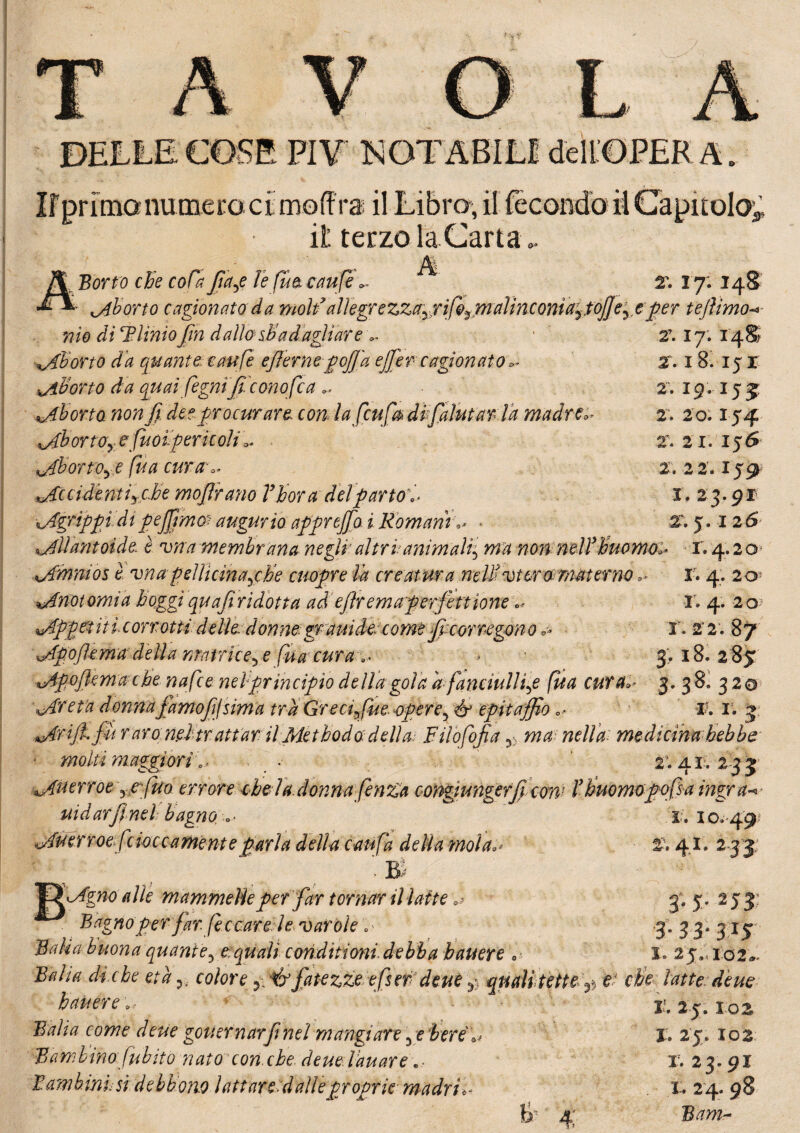 TAVOLA
DELLE COSE PIV NOTABILI dell'OPERA.
Il primo numero ci mostra il Libro, il secondo il Capitolo,
il terzo la Carta.
A
ABorto che cosa sia, e le sue cause. 2. 17. 148
Aborto cagionato da molt'allegrezza, riso, malinconia, tosse, e per testimo-
nio di Plinio sin dallo sbadagliare. 2. 17. 148
Aborto da quante cause esterne possa esser cagionato. 2. 18. 151
Aborto da quai segni si conosca. 2. 19. 153
Aborto non si dee procurare con la scusa di salutar la madre. 2. 20. 154
Aborto, e suoi pericoli. 2. 21. 156
Aborto, e sua cura. 2. 22. 159
Accidenti, che mostrano l'hora del parto. 1. 23. 91
Agrippi di pessimo augurio appresso i Romani. 2. 5. 126
Allantoide è vna membrana negli altri animali, ma non nell'huomo. 1. 4. 20
Amnios è vna pellicina, che cuopre la creatura nell'vtero materno. 1. 4. 20
Anotomia hoggi quasi ridotta ad estrema perfettione. 1. 4. 20
Appetiti corrotti delle donne grauide come si corregono. 1. 22. 87
Apostema della matrice, e sua cura. 3. 18. 285
Apostema che nasce nel principio della gola a fanciulli, e sua cura. 3. 38. 320
Areta donna famosissima trà Greci, sue opere, & epitaffio. 1. 1. 3
Arist. fù raro nel trattar il Methodo della Filosofia, ma nella medicina hebbe
molti maggiori. 2. 41. 233
Auerroe, e suo errore che la donna senza congiungersi con l'huomo possa ingra-
uidarsi nel bagno. 1. 10. 49
Auerroe scioccamente parla della causa della mola. 2. 41. 233
B
BAgno alle mammelle per far tornar il latte. 3. 5. 253
Bagno per far seccare le varole. 3. 33. 315
Balia buona quante, e quali conditioni debba hauere. 1. 25. 102.
Balia di che età, colore, & fatezze esser deue, quali tette, e che latte deue
hauere. 1. 25. 102
Balia come deue gouernarsi nel mangiare, e bere. 1. 25. 102
Bambino subito nato con che deue lauare. 1. 23. 91
Bambini si debbono lattare dalle proprie madri. 1. 24. 98
b 4 Bam-